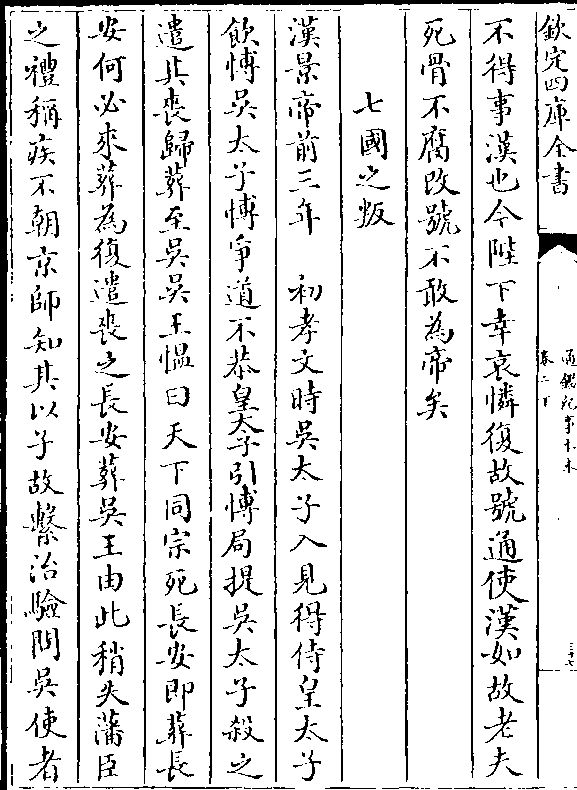 欽定四庫全書
通鑑紀事本末
卷二下
三十七
不得事漢也今陛下幸哀憐復故號通使漢如故老夫
死骨不腐改號不敢為帝矣
七國之叛
漢景帝前三年　初孝文時吳太子入見得侍皇太子
飲博吳太子博爭道不恭皇太子引博局提吳太子殺之
遣其喪歸葬至吳吳王慍曰天下同宗死長安即葬長
安何必來葬為復遣喪之長安葬吳王由此稍失藩臣
之禮稱疾不朝京師知其以子故繫治驗問吳使者